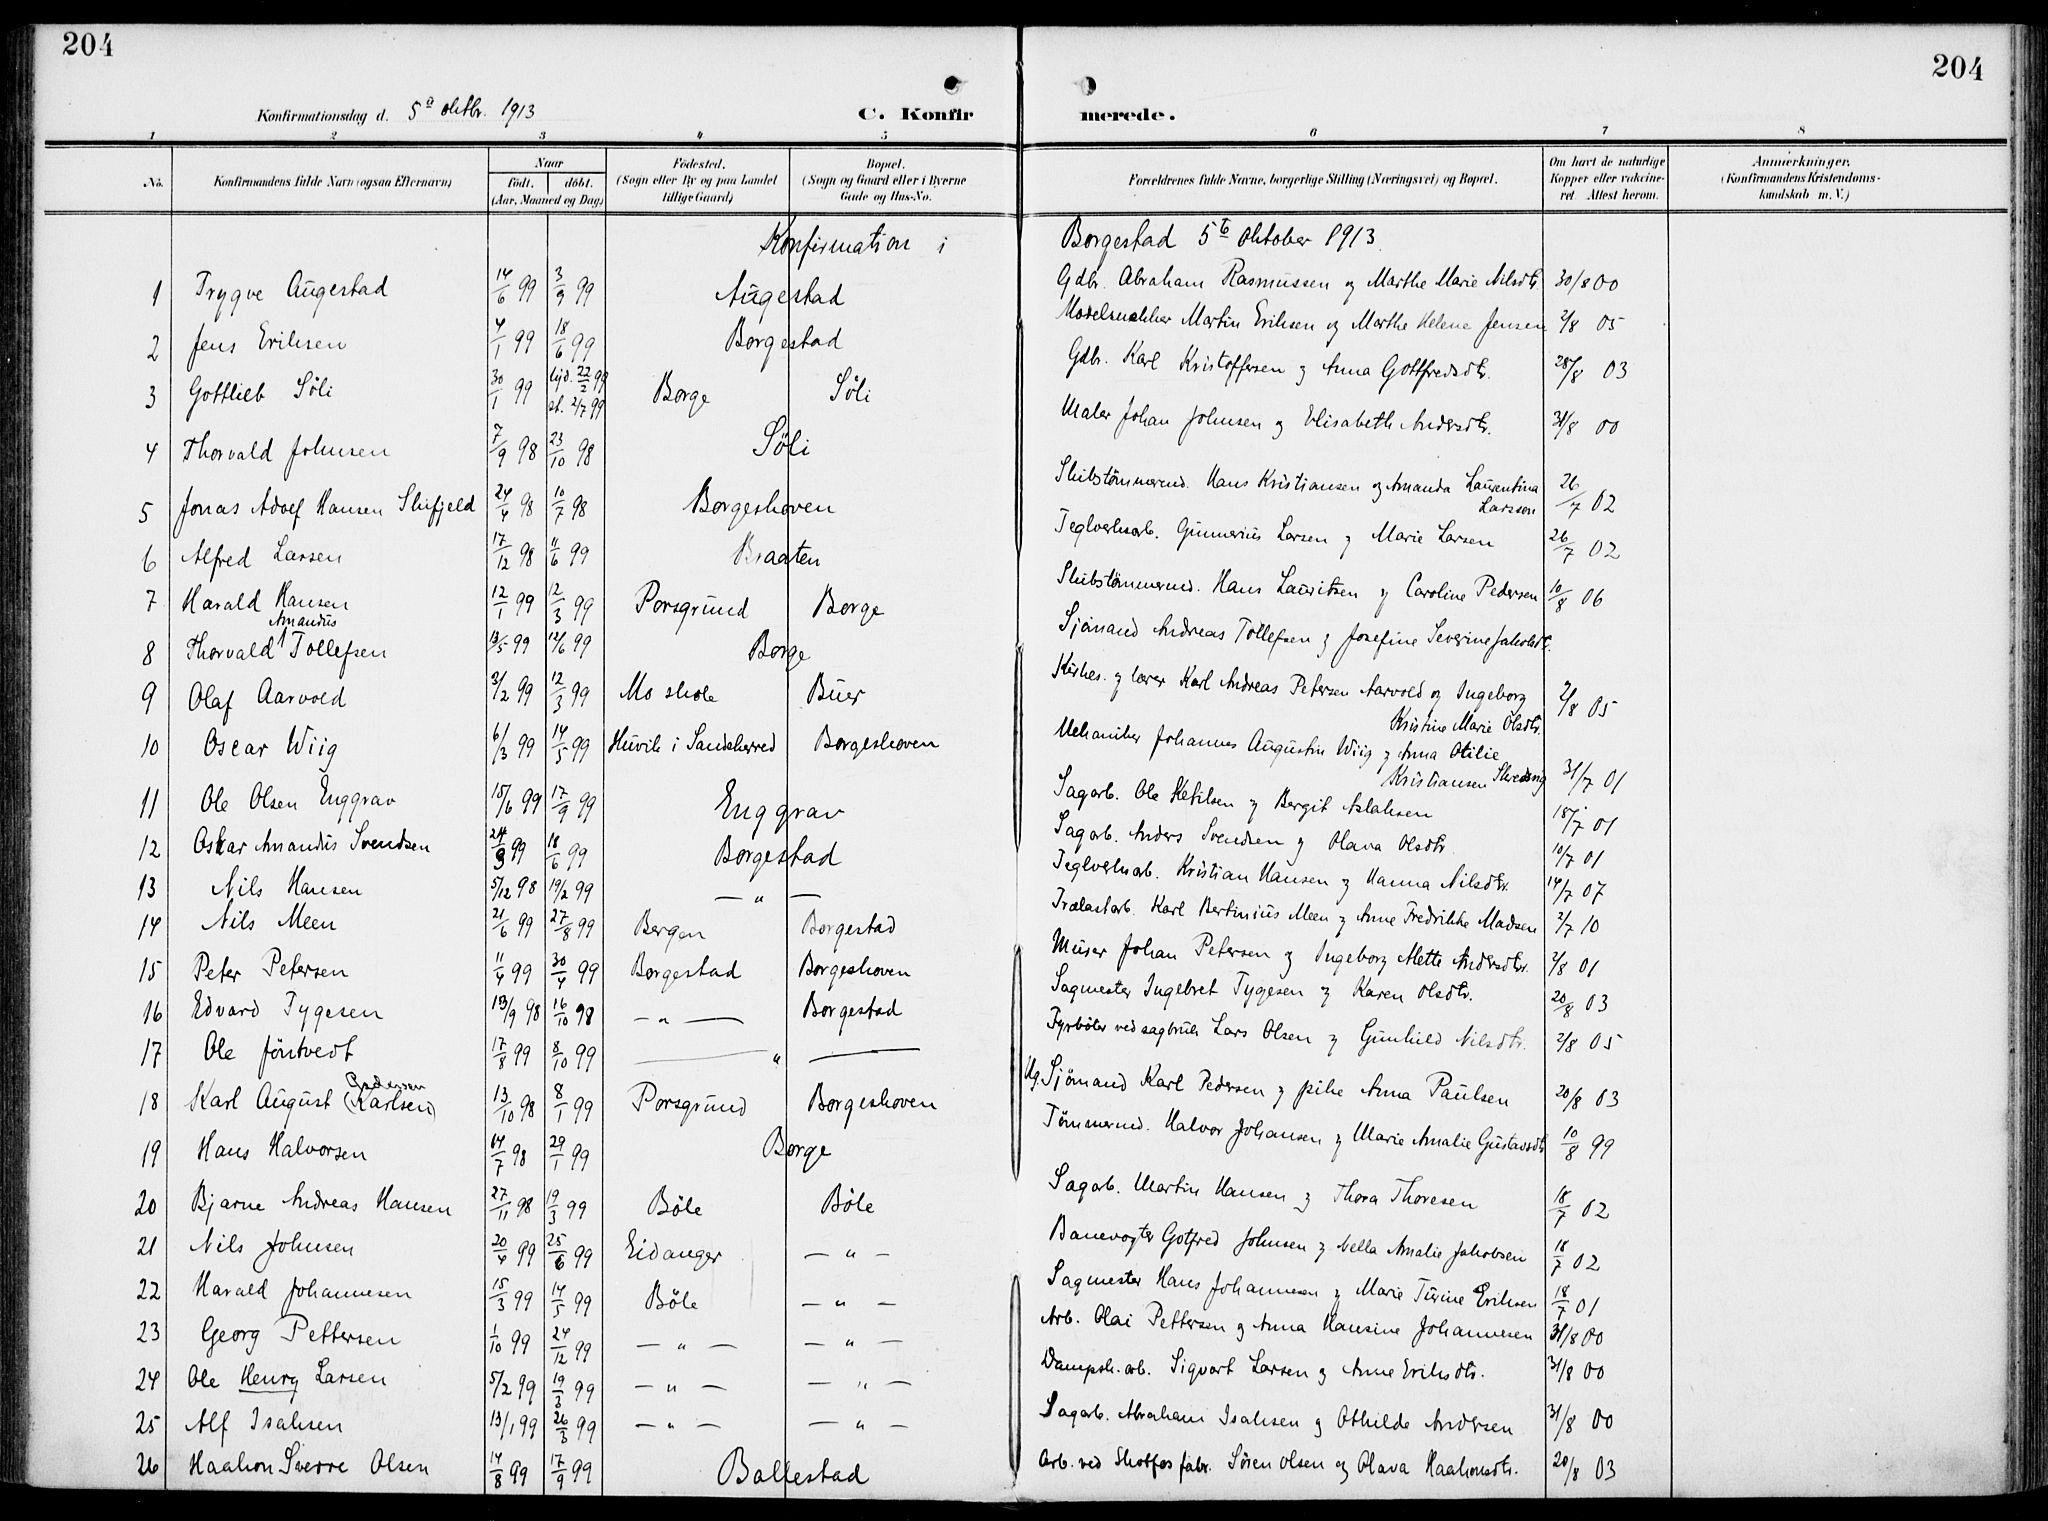 204
204
Konfirmationsdag d. 5te oktbr. 1913
C. Konfirmerede.
1 2 3 4 5 6 7 8
No. Konfirmandens fulde Navn (ogsaa Efternavn) Naar født. døbt. (Aar, Maaned og Dag) Fødested. (Sogn eller By og paa Landet tillige Gaard) Bopæl. (Sogn og Gaard eller i Byerne Gade og Hus-No. Forældrenes fulde Navne, borgerlige Stilling (Næringsvei) og Bopæl. Om havt de naturlige Kopper eller vakcineret. Attest herom. Anmærkninger. (Konfirmandens Kristendomskundskab m. V.)
Konfirmation i Borgestad 5te oktober 1913.
1 Trygve Augestad 14/6 99 3/9 99 Augestad Gdbr. Abraham Rasmussen og Marthe Marie Nilsdtr. 30/8 00
2 Jens Eriksen 4/1 99 18/6 99 Borgestad Modelsnekker Martin Eriksen og Marthe Helene Jensen 2/8 05
3 Gottlieb Søli 30/1 99 hjd. 22/2 99 st. 2/7 99 Borge Søli Gdbr. Karl Kristoffersen og Anna Gottfredsdtr. 28/8 03
4 Thorvald Johnsen 7/9 98 23/10 98 Søli Maler Johan Johnsen og Elisabeth Andersdtr. 31/8 00
5 Jonas Adolf Hansen Skifjeld 24/4 98 10/7 98 Borgeskoven Skibstømmermd. Hans Kristiansen og Amanda Laurentina Larssen 26/7 02
6 Alfred Larsen 17/12 98 11/6 99 Braaten Teglverksarb. Gunnerius Larsen og Marie Larsen 26/7 02
7 Harald Hansen 12/1 99 12/3 99 Porsgrund Borge Skibstømmermd. Hans Lauritsen og Caroline Pedersen 10/8 06
8 Thorvald Amandus Tollefsen 13/5 99 12/6 99 Borge Sjømand Andreas Tollefsen og Josefine Severine Jakobsdtr.
9 Olaf Aarvold 3/2 99 12/3 99 Mo skole Buer Kirkes. og lærer Karl Andreas Petersen Aarvold og Ingeborg Kristine Marie Olsdtr. 2/8 05
10 Oscar Wiig 6/3 99 14/5 99 Huvik i Sandeherred Borgeskoven Mekaniker Johannes Augustin Wiig og Anna Otilie Kristiansen Skredsvig 31/7 01
11 Ole Olsen Enggrav 15/6 99 17/9 99 Enggrav Sagarb. Ole Ketilsen og Bergit Aslaksen 18/7 01
12 Oskar Amandus Svendsen 24/3 99 18/6 99 Borgestad Sagarb. Anders Svendsen og Olava Olsdtr. 10/7 01
13 Nils Hansen 5/12 98 19/2 99 — " — Teglverksarb. Kristian Hansen og Hanna Nilsdtr. 14/7 07
14 Nils Meen 21/6 99 27/8 99 Bergen Borgestad Trælastarb. Karl Bertinius Meen og Anne Fredrikke Madsen 2/7 10
15 Peter Petersen 11/4 99 30/4 99 Borgestad Borgeskoven Murer Johan Petersen og Ingeborg Mette Andersdtr. 2/8 01
16 Edvard Tygesen 13/9 98 16/10 98 — " — Borgestad Sagmester Ingebret Tygesen og Karen Olsdtr. 20/8 03
17 Ole Jøntvedt 17/8 99 8/10 99 — " — Fyrbøter ved sagbruk Lars Olsen og Gunhild Nilsdtr. 2/8 05
18 Karl August Pedersen (Karlsen) 13/10 98 8/1 99 Porsgrund Borgeskoven Ug. Sjømand Karl Pedersen og pike Anna Paulsen 20/8 03
19 Hans Halvorsen 14/7 98 29/1 99 Borge Tømmermd. Halvor Johansen og Marie Amalie Gustavsdtr 10/8 99
20 Bjarne Andreas Hansen 27/11 98 19/3 99 Bøle Bøle Sagarb. Martin Hansen og Thora Thoresen 18/7 02
21 Nils Johnsen 20/4 99 25/6 99 Eidanger — " — Banevogter Gotfred Johnsen og Nella Amalie Jakobsen 18/7 02
22 Harald Johannesen 15/3 99 14/5 99 Bøle — " — Sagmester Hans Johannesen og Marie Turine Eriksen 18/7 01
23 Georg Pettersen 1/10 99 24/12 99 — " — — " — Arb. Olai Pettersen og Anna Hansine Johannesen 31/8 00
24 Ole Henry Larsen 5/2 99 19/3 99 — " — — " — Dampsk. arb. Sigvart Larsen og Anne Eriksdtr. 31/8 00
25 Alf Isaksen 13/1 99 26/3 99 — " — — " — Sagarb. Abraham Isaksen og Othilde Andersen 31/8 00
26 Haakon Sverre Olsen 14/8 99 17/9 99 Ballestad Arb. ved Skotfos fabr. Søren Olsen og Olava Haakonsdtr. 20/8 03